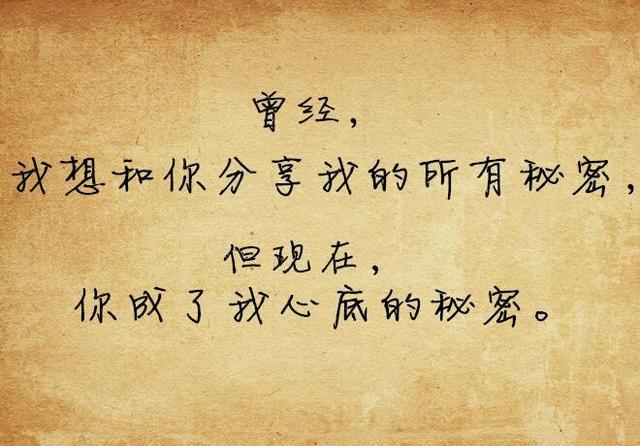 曾经，
我想和你分享我的所有秘密，
但现在，
你成了我心底的秘密。